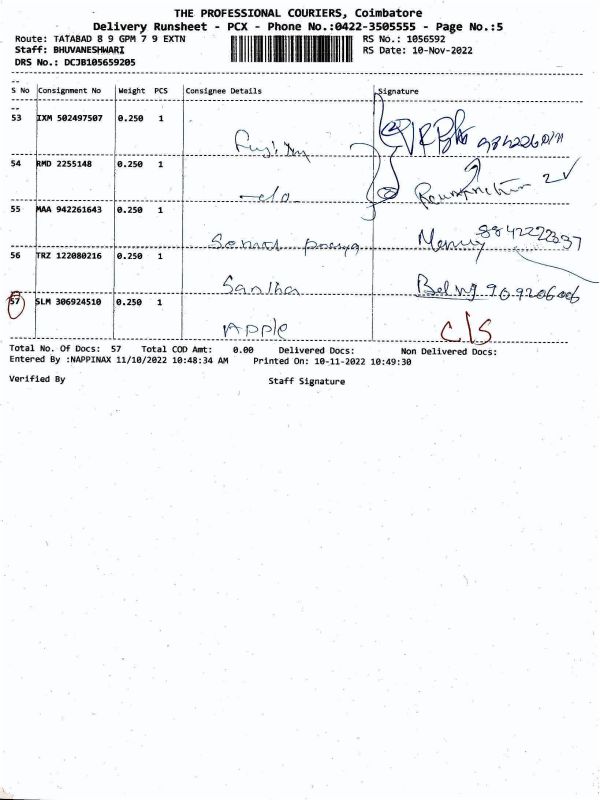 THE PROFESSIONAL COURIERS, Coimbatore
Delivery Runsheet - PCX - Phone No.:0422-3505555 - Page No.:5
Route: TATABAD 8 9 GPM 7 9 EXTN RS No.: 1056592
Staff: BHUVANESHWARI RS Date: 10-Nov-2022
DRS No.: DCJB105659205
S No Consignment No Weight PCS Consignee Details Signature
53 IXM 502497507 0.250 1
54 RMD 2255148 0.250 1
55 MAA 942261643 0.250 1
56 TRZ 122080216 0.250 1
Santha
57 SLM 306924510 0.250 1
Apple C/S
Total No. Of Docs: 57 Total COD Amt: 0.00 Delivered Docs: Non Delivered Docs:
Entered By :NAPPINAX 11/10/2022 10:48:34 AM Printed On: 10-11-2022 10:49:30
Verified By Staff Signature